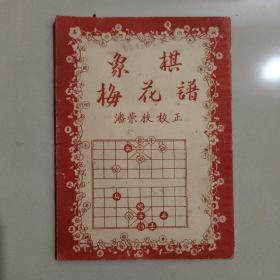 象棋
梅花譜
潘榮枝校正